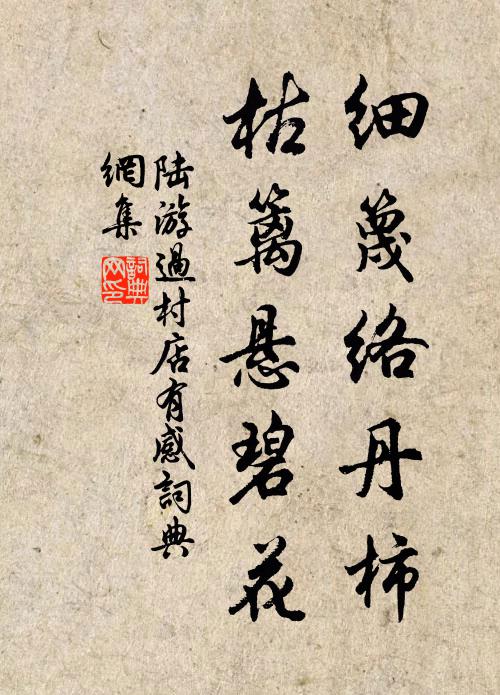 細蔑絡丹柿
枯籬悬碧花
陆游過村店有感詞典
網集
詞典
网印